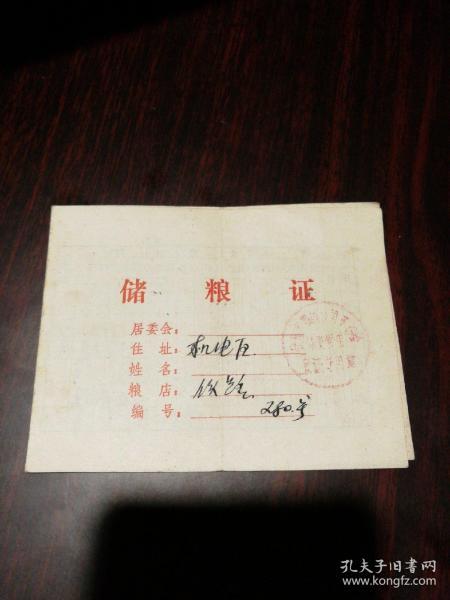 储粮证
居委会：
住址：机电厂
姓名：
粮店：铁路
编号：280号
孔夫子旧书网
www.kongfz.com